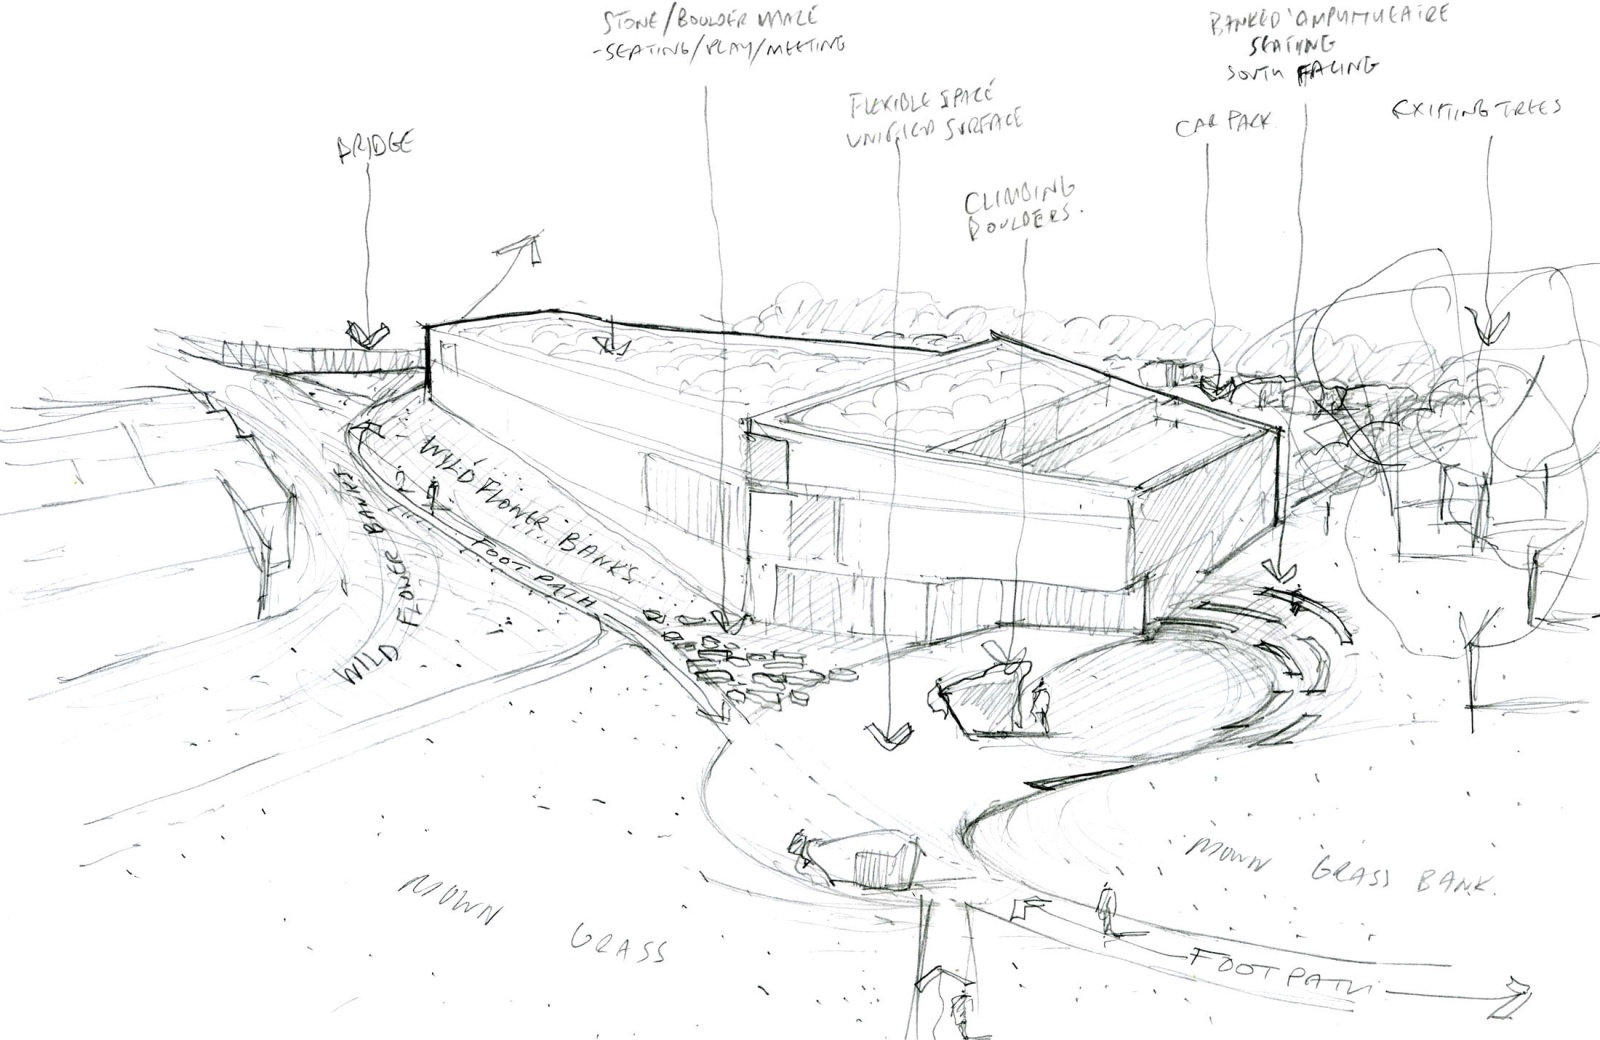 STONE/BOULDER MAZE
-SEATING/PLAY/MEETING
BANKED 'AMPHITHEATRE
SEATING
SOUTH FACING
FLEXIBLE SPACE
UNIFIED SURFACE
CAR PARK.
EXISTING TREES
BRIDGE
CLIMBING
BOULDERS.
WILD FLOWER BANKS
WILD FLOWER BANKS
FOOT PATH
MOWN GRASS BANK.
MOWN GRASS
FOOT PATH